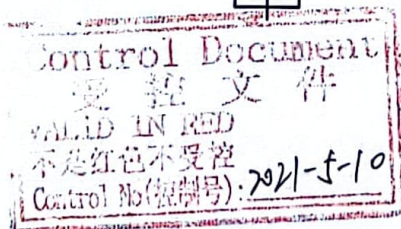 Control Document
受控文件
VALID IN RED
不是红色不受控
Control No(控制号):2021-5-10